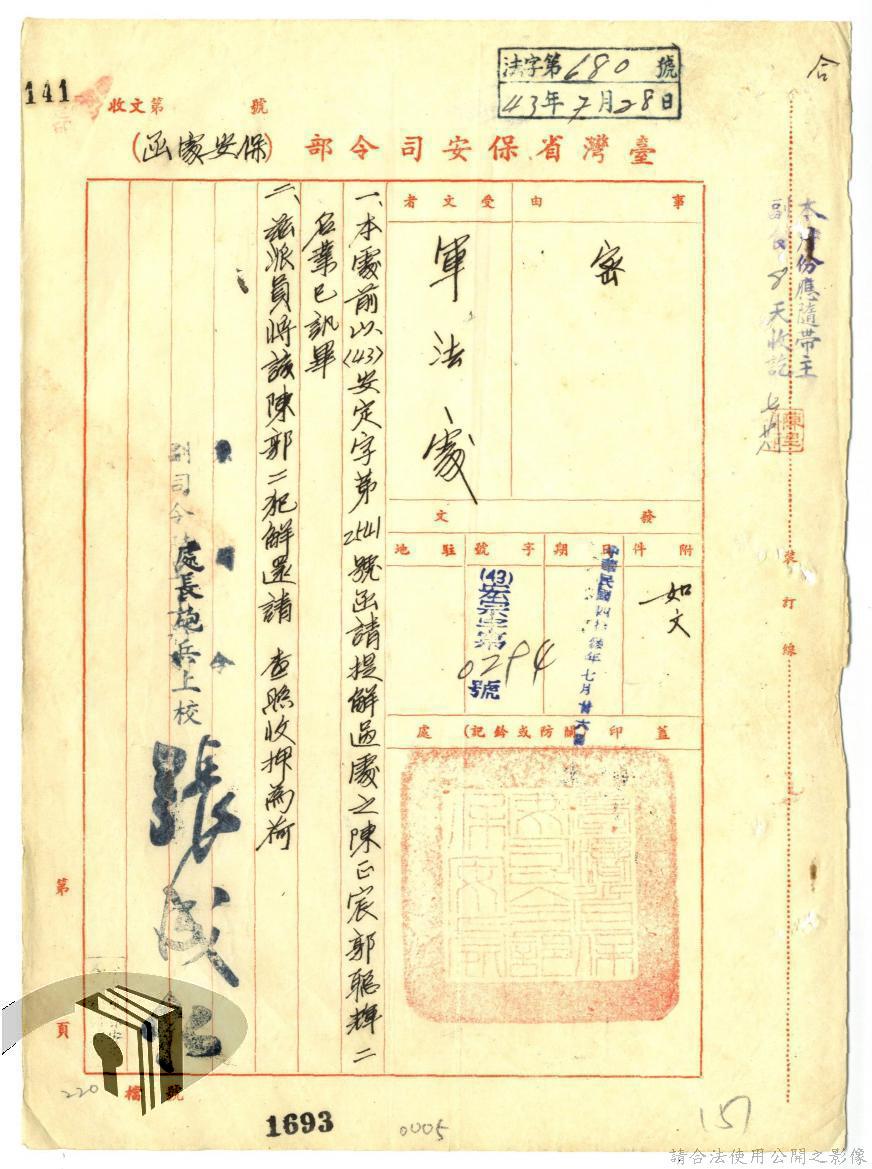 141
收文第 號
法字第680號
43年7月28日
合
臺灣省保安司令部(保安處函)
本件身份應隨帶主
副食8天收訖
事由
密
受文者
軍法處
發文
附件
如文
日期
中華民國四拾叁年七月廿六日
字號
(43)安宗字第
0294
號
駐地
蓋印(關防或鈐記)處
一、本處前以(43)安定字第2541號函請提解過處之陳正宸郭聰輝二
名業已訊畢
二、茲派員將該陳郭二犯解還請 查照收押為荷
副司令
處長砲兵上校
裝訂線
第 頁
檔號
220
1693
0005
151
請合法使用公開之影像